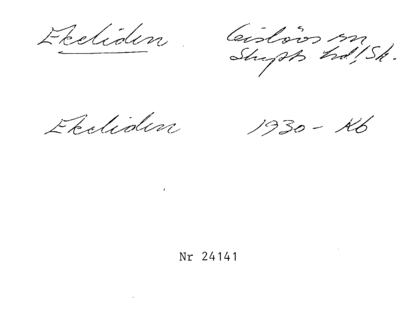 Ekeliden Gislövs sn
Skytts hd, Sk.
Ekeliden 1930 - Kb
Nr 24141